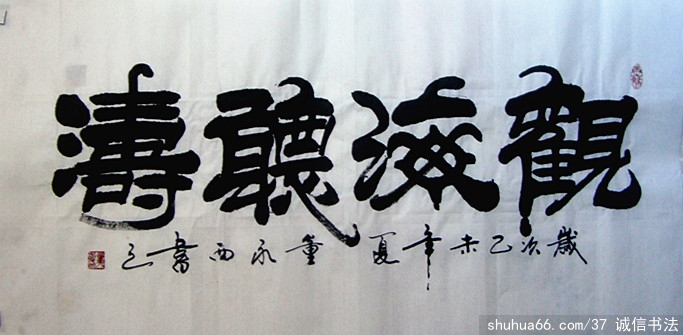 觀海聽濤
歲次乙未年夏童永西書之
shuhua66.com/37 诚信书法